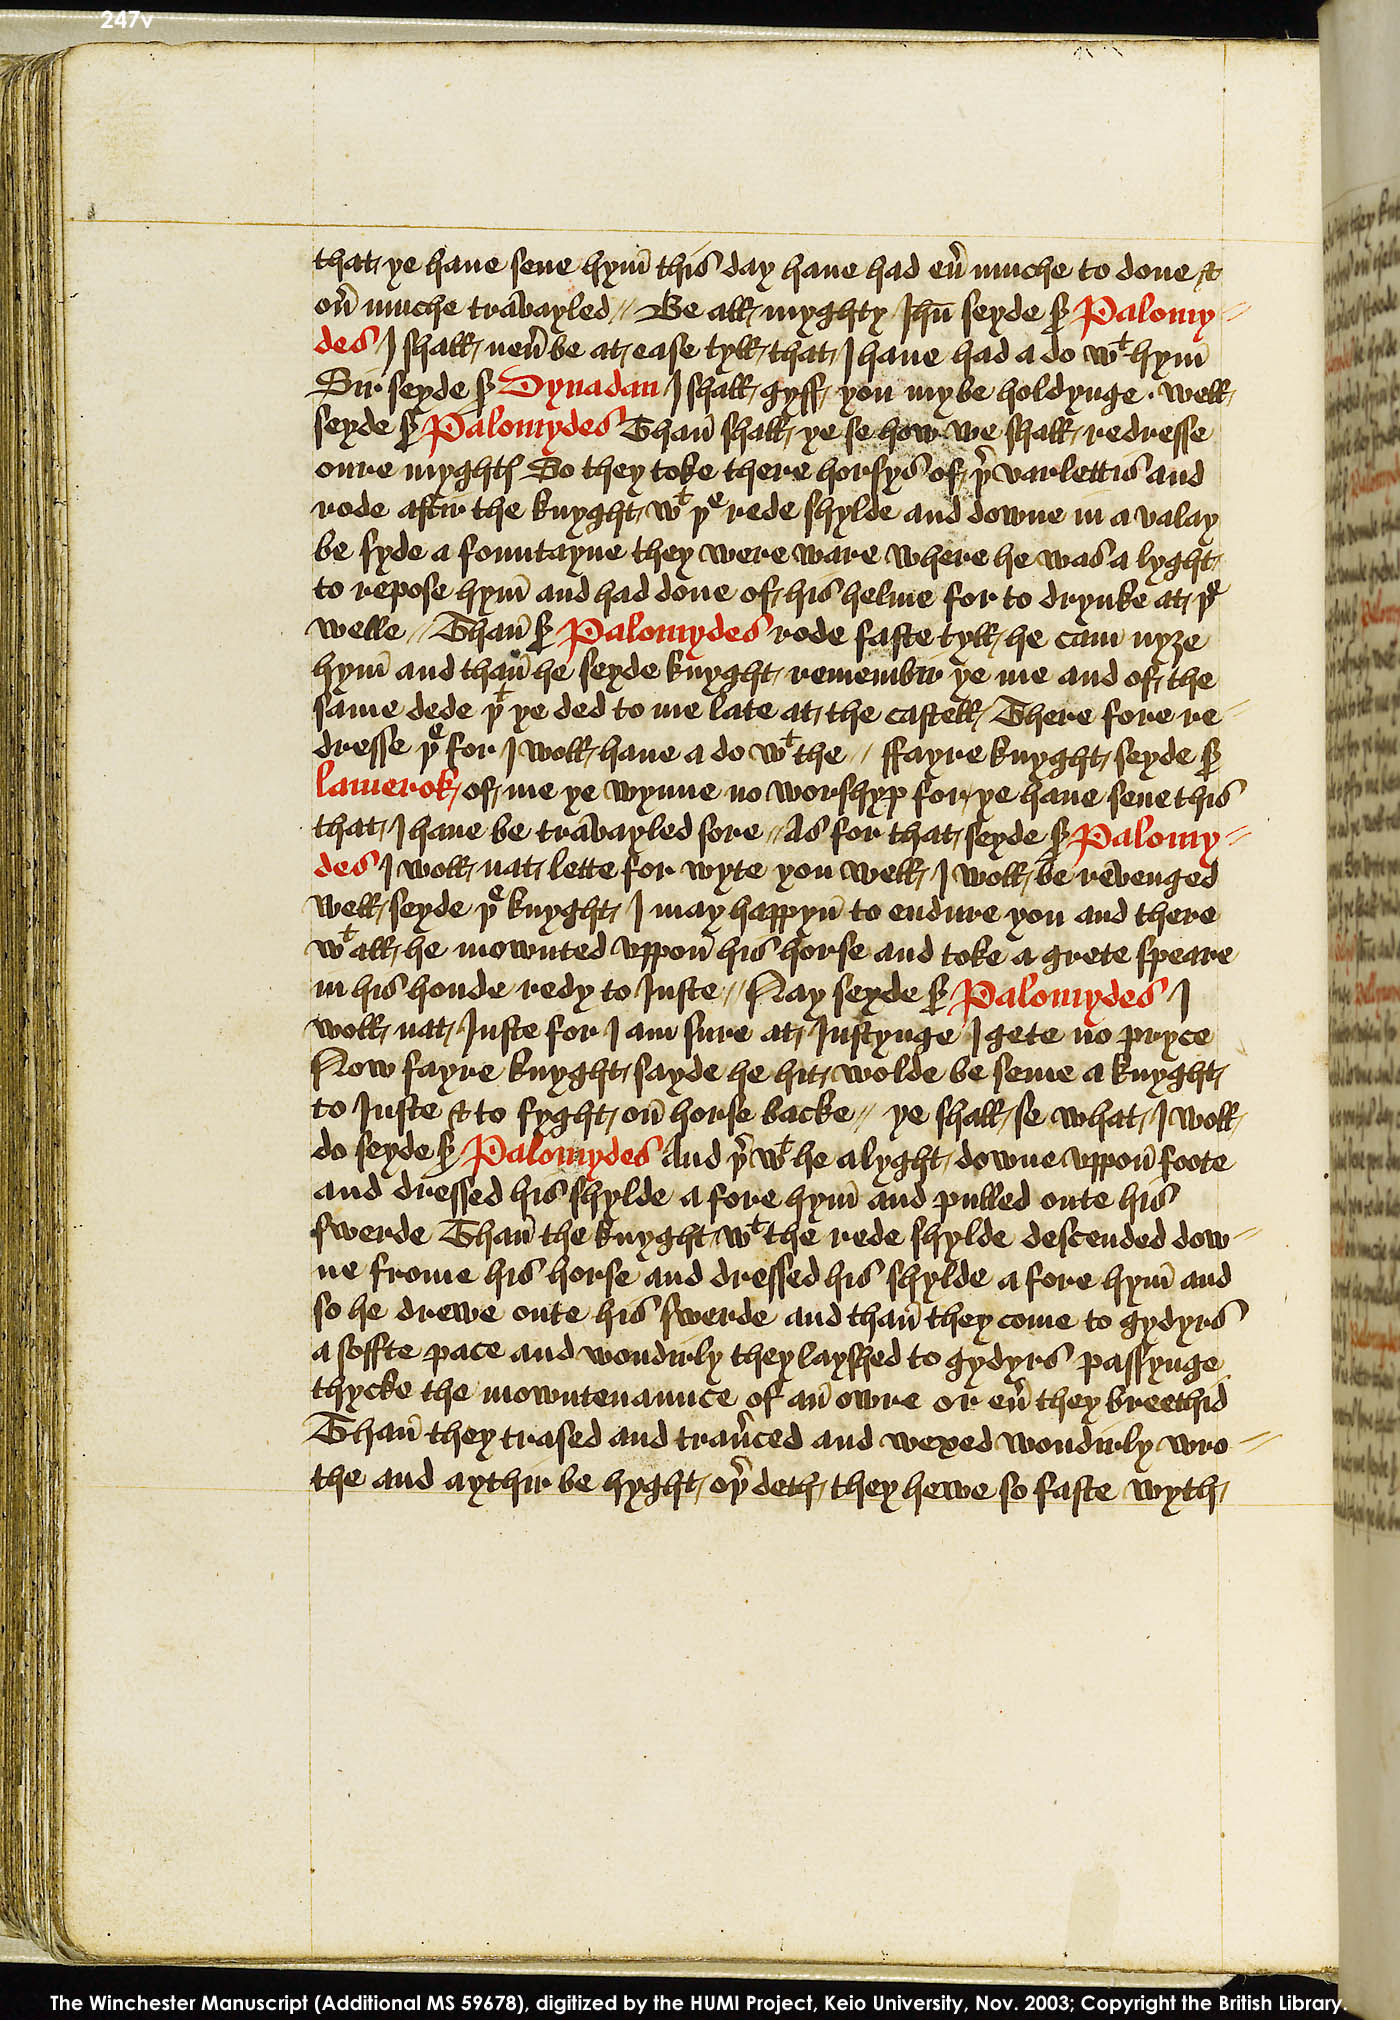 247v
that ye haue sene hym̄ this day haue had eu̓ muche to done &
ou̓ muche trauayled // Be all myghty Ihū seyde s̓ Palomy-
des I shall neu̓ be at ease tyll that I haue had a do wᵗ hym̄
Sir seyde s̓ Dynadan I shall gyff you my be holdynge . well
seyde s̓ Palomydes Than̄ shall ye se how we shall redresse
oure myghtꝭ So they toke there horsys of þ̓ varlettis and
rode aftir the knyght wᵗ þᵉ rede shylde and downe in a valay
be syde a fountayne they were ware where he was a lyght
to repose hym̄ and had done of his helme for to drynke at þᵉ
welle // Than̄ s̓ Palomydes rode faste tyll he cam nyʒe
hym̄ and than̄ he seyde knyght remembir ye me and of the
same dede þᵗ ye ded to me late at the castell / There fore re-
dresse þᵉ for I woll haue a do wᵗ the // ffayre knyght seyde s̓
lamerok of me ye wynne no worshyp for ye haue sene this
that I haue be trauayled sore // As for that seyde s̓ Palomy-
des I woll nat lette for wyte you well I woll be revenged
well seyde þᵉ knyght I may happyn̄ to endure you and there
wᵗ all he mownted vppon̄ his horse and toke a grete speare
in his honde redy to Iuste // Nay seyde s̓ Palomydes I
woll nat Iuste for I am sure at Iustynge I gete no pryce
Now fayre knyght sayde he hit wolde be seme a knyght
to Iuste & to fyght on̄ horse backe // ye shall se what I woll
do seyde s̓ Palomydes And þ̓ wᵗ he alyght downe vppon̄ foote
and dressed his shylde a fore hym̄ and pulled oute his
swerde Than̄ the knyght wᵗ the rede shylde descended dow-
ne frome his horse and dressed his shylde a fore hym̄ and
so he drewe oute his swerde and than̄ they come to gydyrs
a soffte pace and wondirly they layshed to gydyrs passynge
thycke the mowntenaunce of an̄ owre or eu̓ they breethid
Than̄ they trased and trau̓ced and wexed wondirly wro-
the and aythir be hyght oþ̓ deth they hewe so faste wyth
The Winchester Manuscript (Additional MS 59678), digitized by the HUMI Project, Keio University, Nov. 2003; Copyright the British Library.